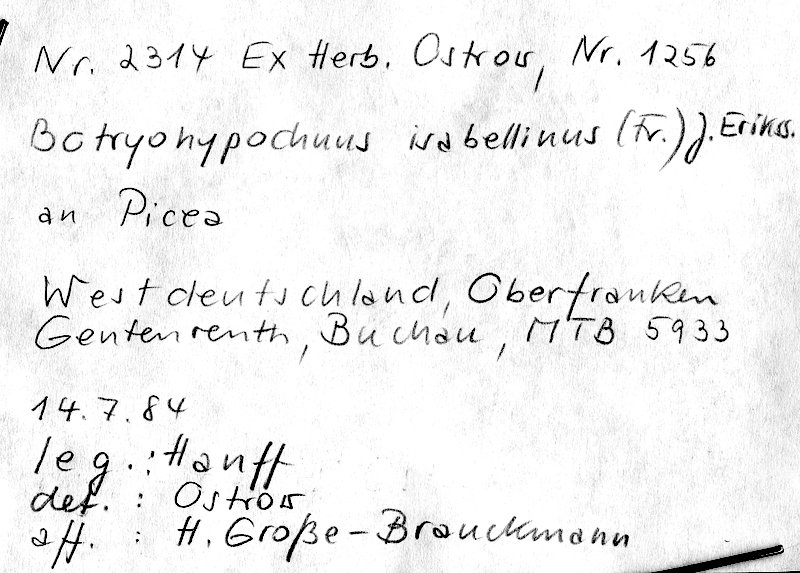 Nr. 2314 Ex Herb. Ostrow, Nr. 1256
Botryohypochnus isabellinus (Fr.) J. Erikss.
an Picea
Westdeutschland, Oberfranken
Gentenreuth, Buchau, MTB 5933
14.7.84
leg.: Hanff
det. : Ostrow
aff. : H. Große-Brauckmann